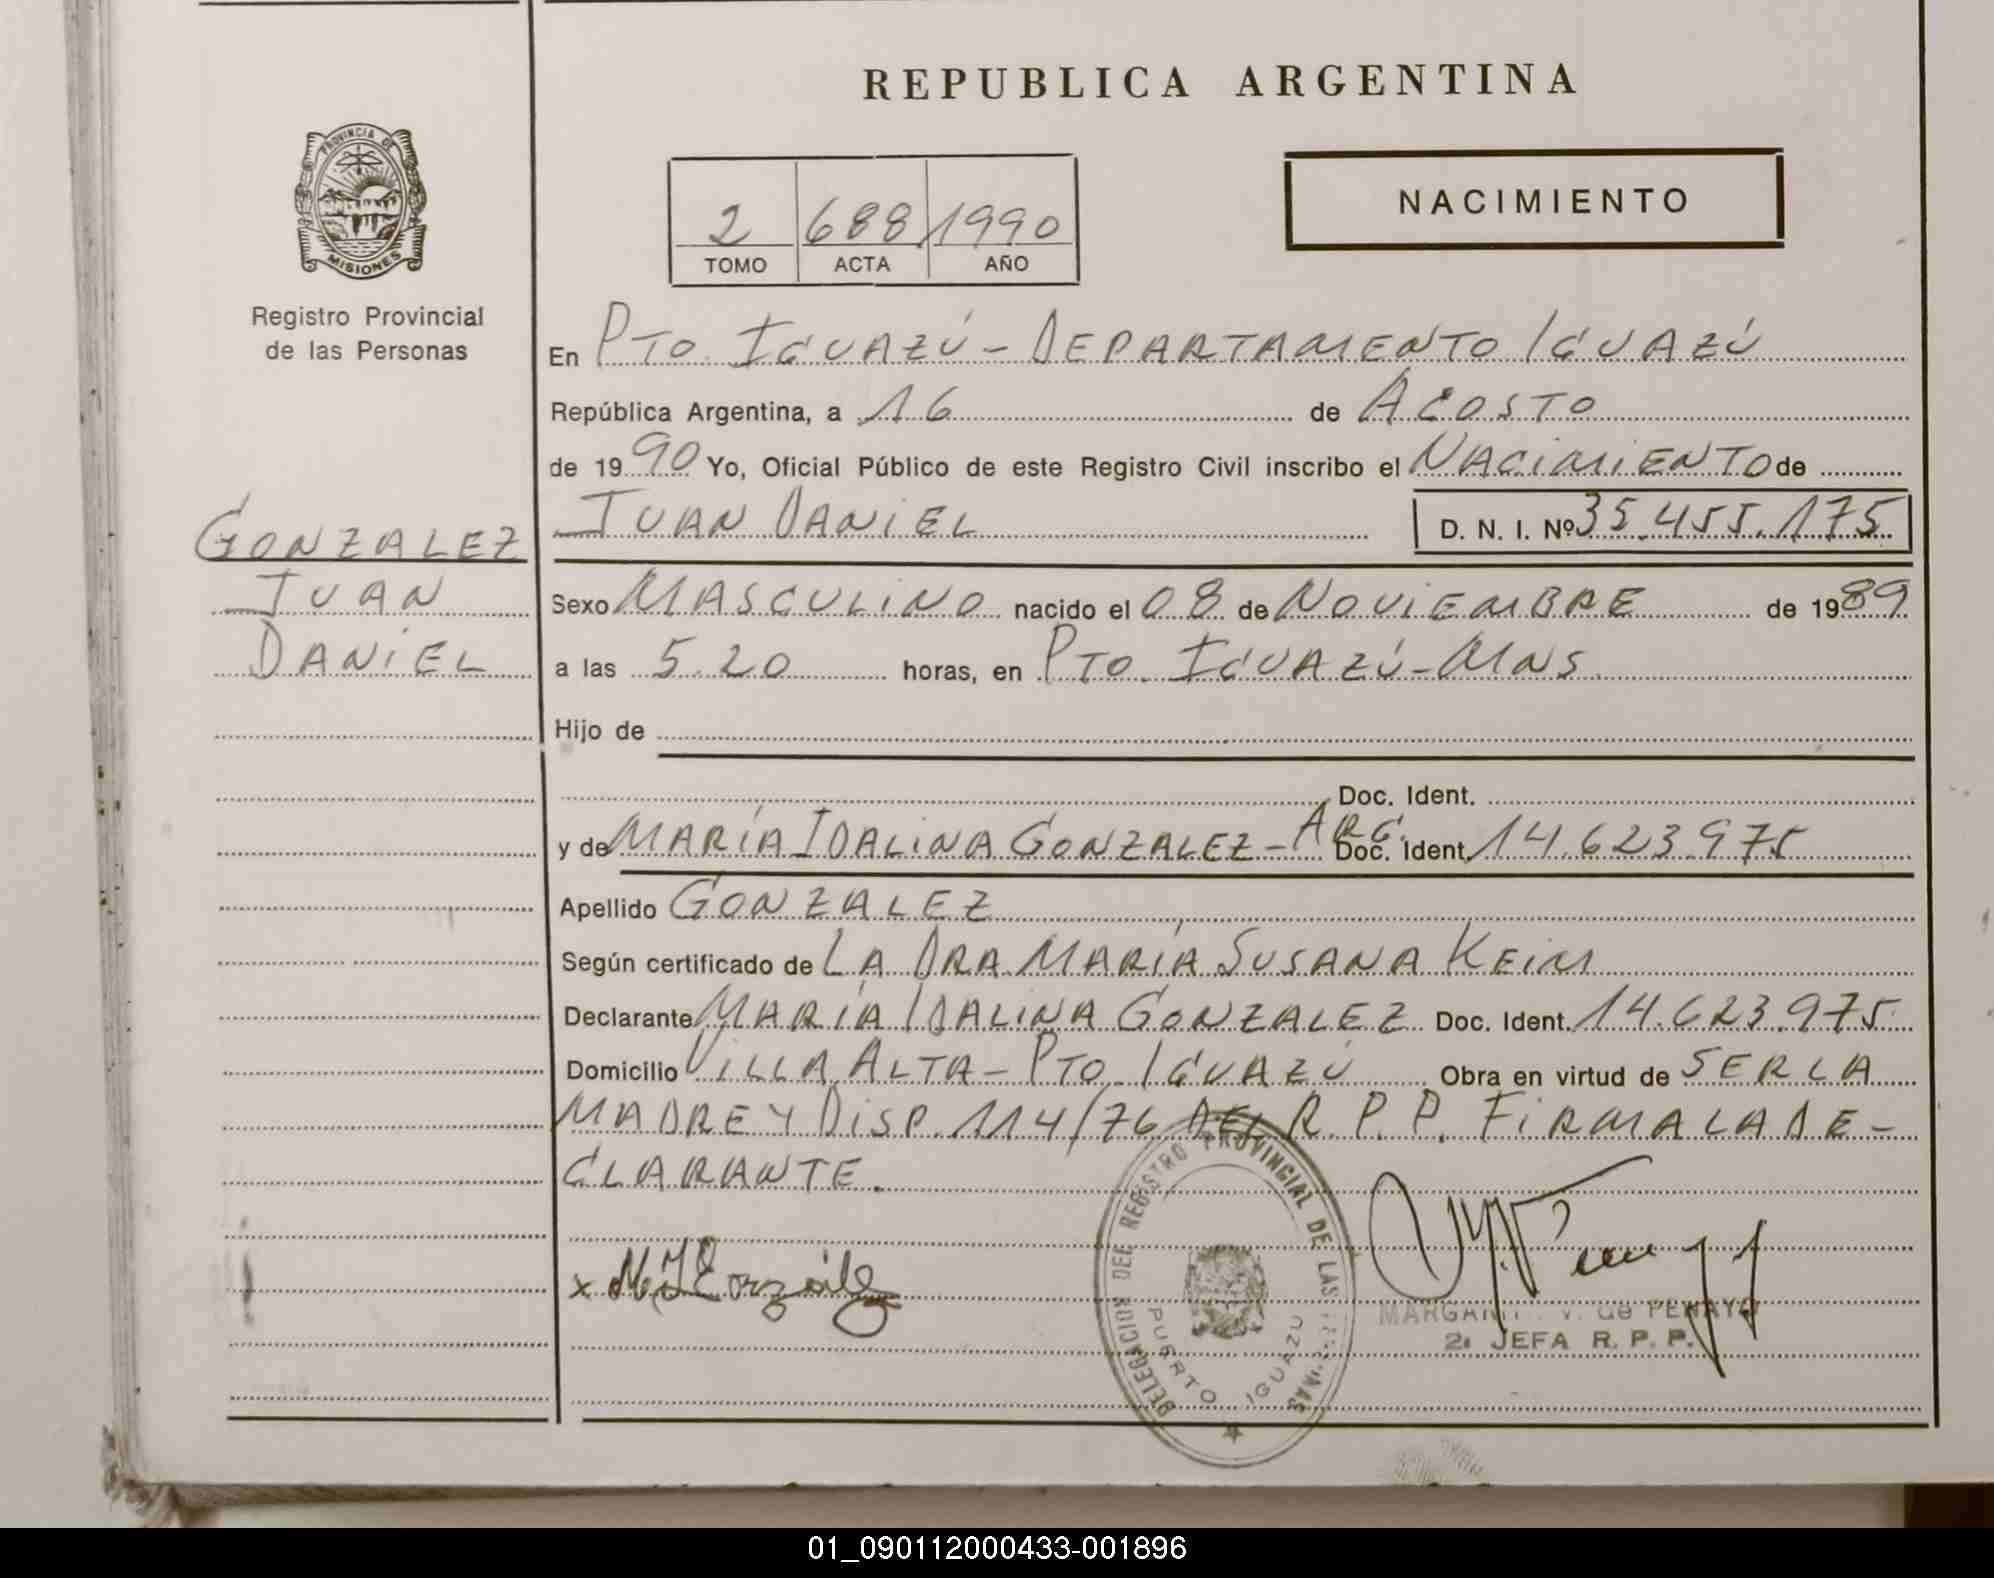 REPUBLICA ARGENTINA
PROVINCIA DE
MISIONES
Registro Provincial
de las Personas
NACIMIENTO
2 688 1990
TOMO ACTA AÑO
En PTO. IGUAZÚ - DEPARTAMENTO IGUAZÚ
República Argentina, a 16 de AGOSTO
de 1990 Yo, Oficial Público de este Registro Civil inscribo el NACIMIENTO de
JUAN DANIEL D. N. I. Nº 35.455.175
GONZALEZ
JUAN
DANIEL
Sexo MASCULINO nacido el 08 de NOVIEMBRE de 1989
a las 5.20 horas, en PTO. IGUAZÚ - MNS.
Hijo de
Doc. Ident.
y de MARÍA IDALINA GONZALEZ - ARG. Doc. Ident. 14.623.975
Apellido GONZALEZ
Según certificado de LA DRA MARÍA SUSANA KEIM
Declarante MARÍA IDALINA GONZALEZ Doc. Ident. 14.623.975
Domicilio VILLA ALTA - PTO. IGUAZÚ Obra en virtud de SER LA
MADRE Y DISP. 114/76 DEL R. P. P. FIRMA LA DE-
CLARANTE.
x M. I. González
DELEGACION DEL REGISTRO PROVINCIAL DE LAS
PUERTO IGUAZU
V. de PENAYO
JEFA R. P. P.
01_090112000433-001896